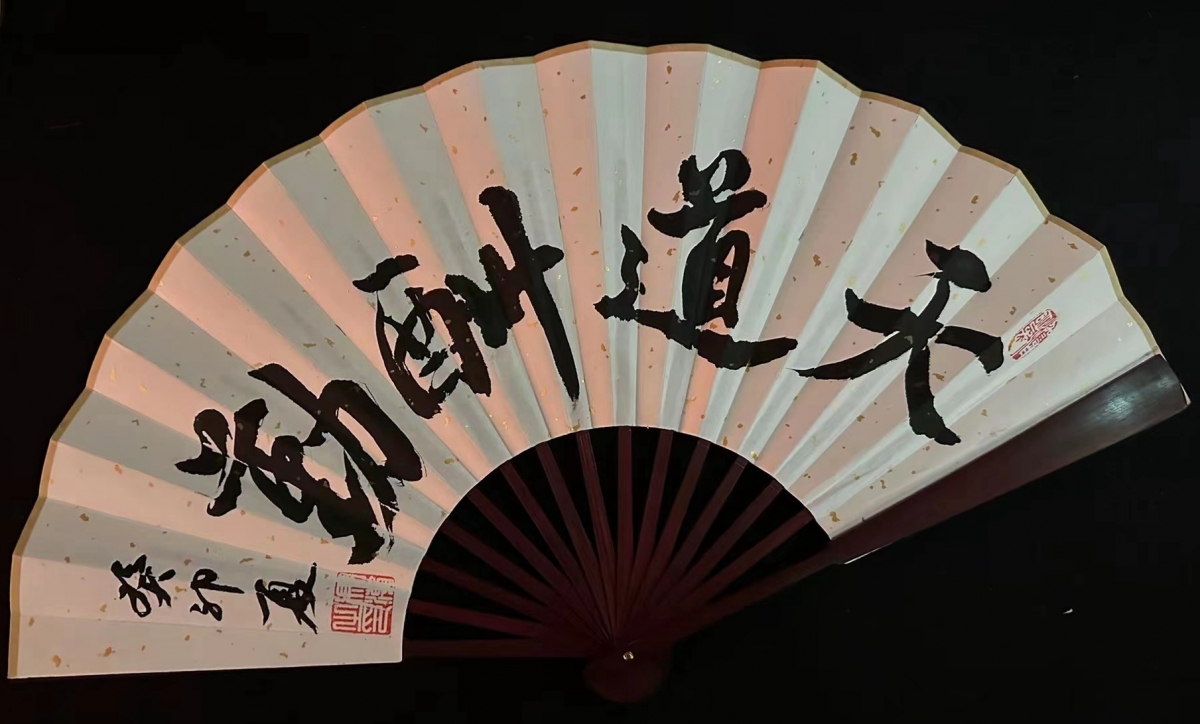 天道酬勤
癸卯夏